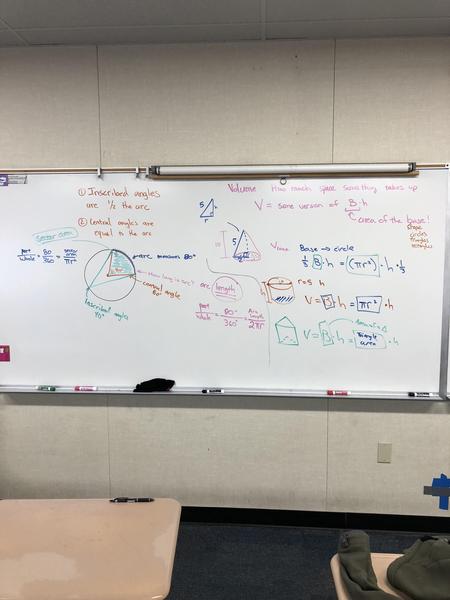 ① Inscribed angles
are 1/2 the arc
② Central angles are
equal to the arc
sector area
part/whole = 80/360 = sector area/πr²
arc measures 80°
How long is arc?
arc length
central angle
80°
Inscribed angle
40°
part/whole = 80°/360° = Arc length/2πr
Volume How much space something takes up
V = some version of B·h
area of the base!
shape
circles
triangles
rectangles
5
r
5
Base → circle
1/3 B·h = (πr²)·h·1/3
r=5
h
V = B·h = πr²·h
V = B·h = Triangle area·h